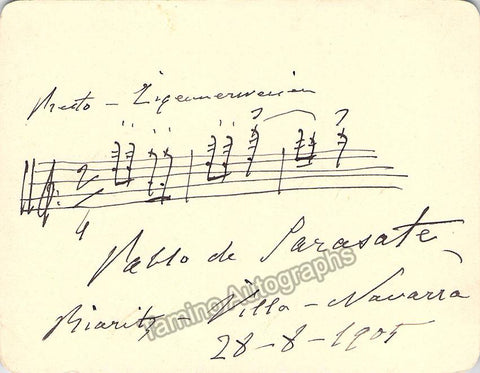 Presto - Zigeunerweisen
2
4
Pablo de Sarasate
Tamino Autographs
Biaritz - Villa - Navarra
28-8-1905